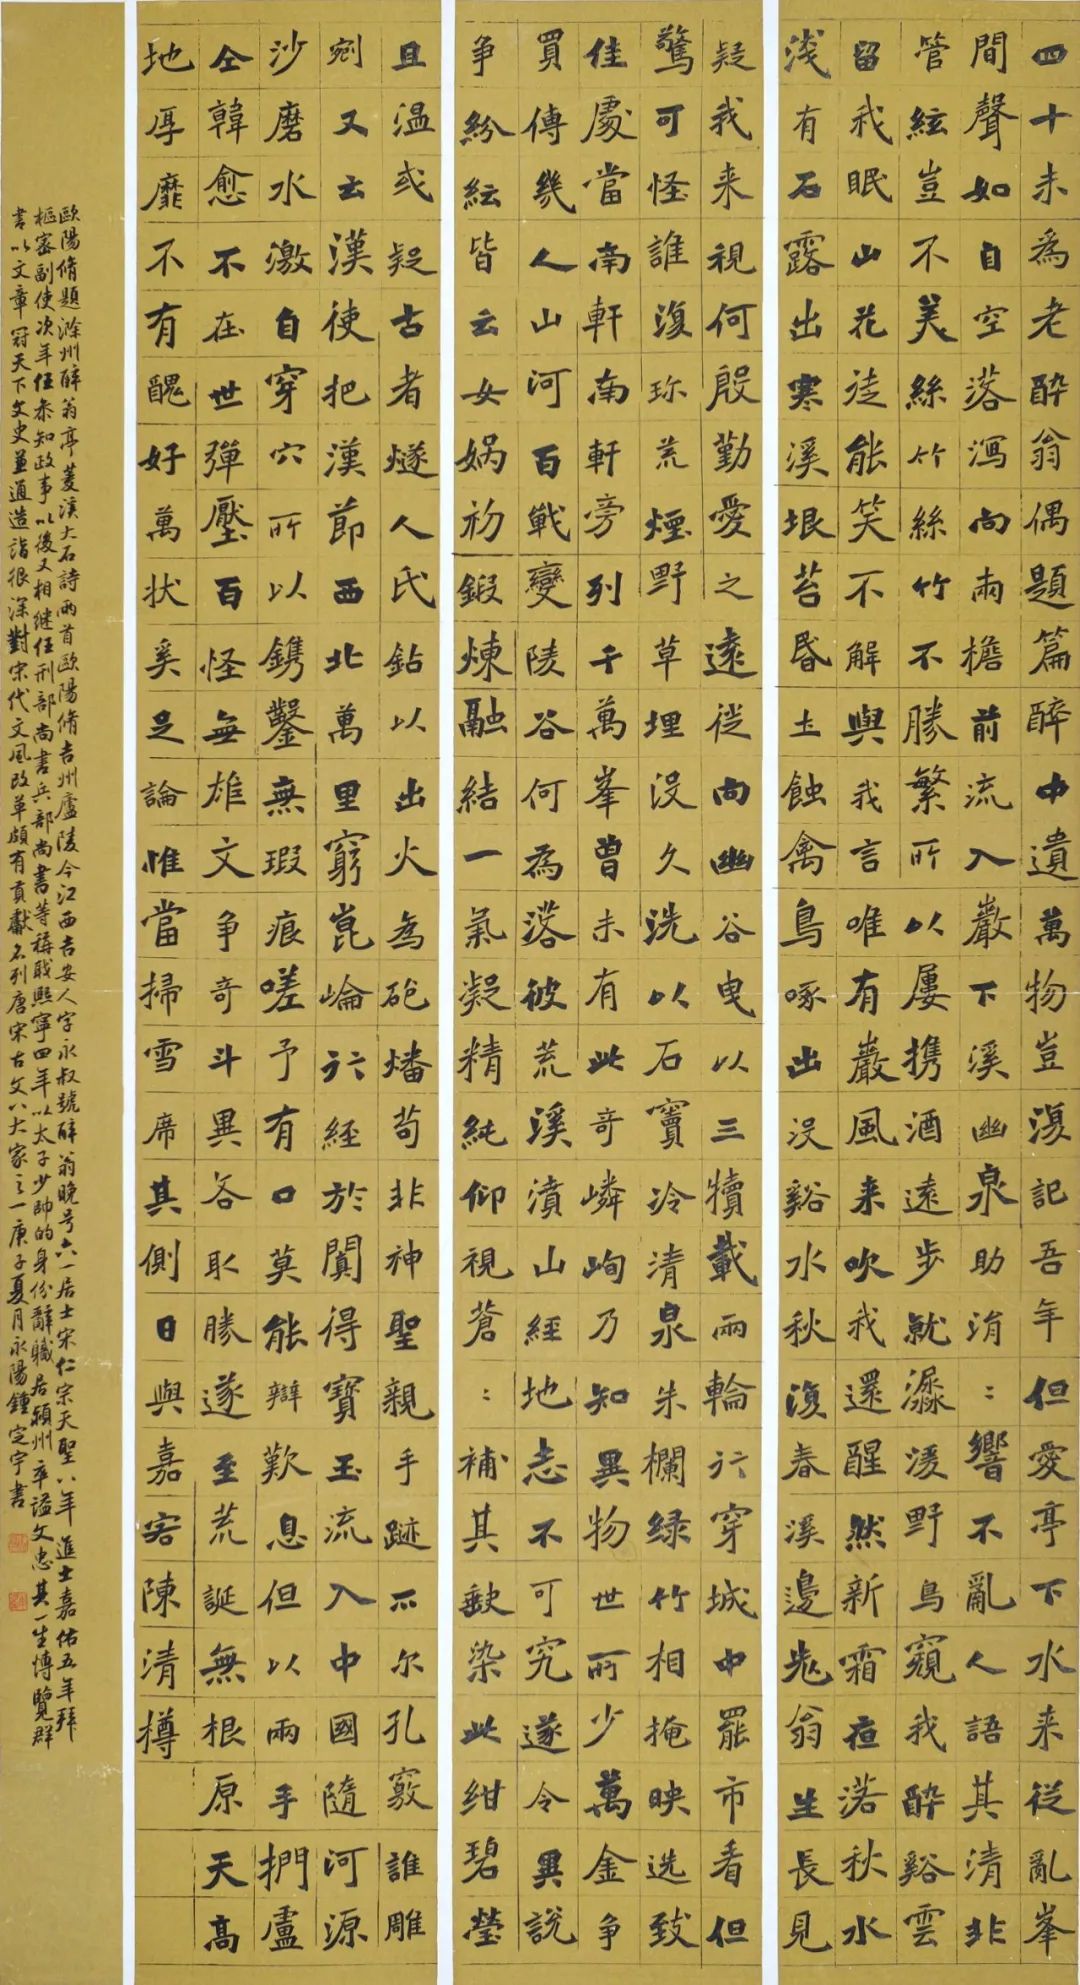 四十未為老醉翁偶題篇醉中遺萬物豈復記吾年但愛亭下水来從亂峯
間聲如自空落瀉向兩檐前流入巖下溪幽泉助涓:響不亂人語其清非
管絃豈不美絲竹絲竹不勝繁所以屢携酒遠步就潺湲野鳥窺我醉谿雲
留我眠山花徒能笑不解與我言唯有巖風来吹我還醒然新霜夜落秋水
淺有石露出寒溪垠苔昏土蝕禽鳥啄出沒谿水秋復春溪邊老翁生長見
疑我来視何殷勤愛之遠從向幽谷曳以三犢載兩輪行穿城中罷市看但
驚可怪誰復珍荒煙野草埋沒久洗以石竇泠清泉朱欄绿竹相掩映选致
佳處當南軒南軒旁列千萬峯曽未有此奇嶙峋乃知異物世所少萬金争
買傳幾人山河百戰變陵谷何為落彼荒溪濆山經地志不可究遂令異說
争紛紜皆云女媧初鍛煉融結一氣凝精純仰視蒼:補其缺染此紺碧瑩
且温或疑古者燧人氏鉆以出火為砲燔苟非神聖親手跡不尔孔竅誰雕
剜又云漢使把漢節西北萬里窮崑崙行經於闐得寶玉流入中國隨河源
沙磨水激自穿穴所以鐫鑿無瑕痕嗟予有口莫能辯歎息但以兩手捫盧
仝韓愈不在世彈壓百怪無雄文争奇斗異各取勝遂至荒誕無根原天高
地厚靡不有醜好萬状奚足論惟當掃雪席其側日與嘉客陳清樽
歐陽脩題滁州醉翁亭菱溪大石詩兩首歐陽脩吉州廬陵今江西吉安人字永叔號醉翁晚号六一居士宋仁宗天聖八年進士嘉佑五年拜
樞密副使次年任叅知政事以後又相继任刑部尚書兵部尚書等職熙寧四年以太子少師的身份辭職居潁州卒謚文忠其一生博覽群
書以文章冠天下文史並通造詣很深對宋代文風改革頗有貢獻名列唐宋古文八大家之一庚子夏月永陽鍾定宇書